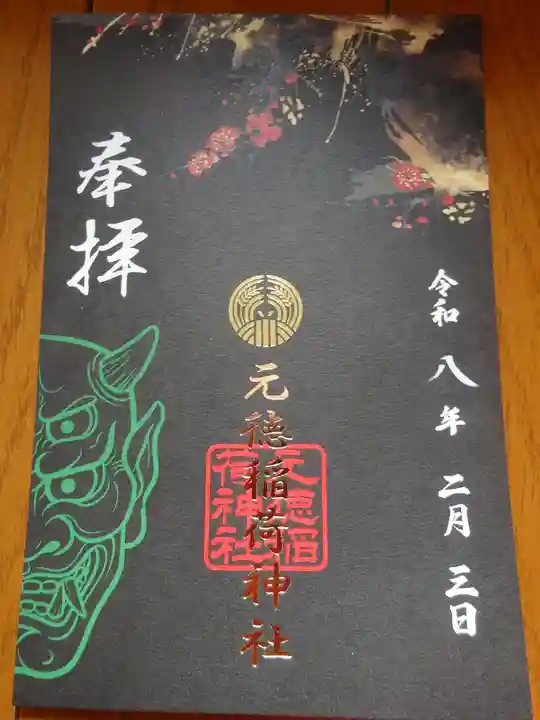 令和八年二月三日
元徳稲荷神社
元徳稲荷神社
奉拝